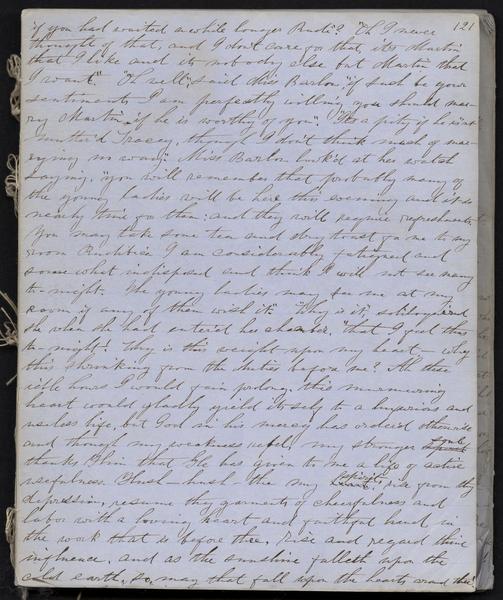 121
if you had waited awhile longer Ruth"? "Oh I never
thought of that, and I don't care for that its Martin
that I like and its nobody else but Martin that
I want". "Oh well", said Miss Barlow, "if such be your
sentiments I am perfectly willing you should mar-
ry Martin, if he is worthy of you". "Its a pity if he isn't"
mutter'd Tracey, though I don't think much of mar-
rying no way". Miss Barlow look'd at her watch
saying, "you will remember that probably many of
the young ladies will be here this evening and it is
nearly time for them; and they will require refreshments.
You may take some tea and dry toast for me to my
room I am considerably fatigued and
somewhat indisposed and think I will not see many
to night. The young ladies may see me at my
room if any of them wish it". "Why is it", soliloquized
she when she had entered her chamber, "that I feel thus
to night? Why is this weight upon my heart,— why
this shrinking from the duties before me? Ah these
idle hours I would fain prolong, this murmuring
heart would gladly yield itself to a luxurious and
useless life, but God in his mercy has order'd otherwise
and though my weakness rebel, my stronger soul
thanks Him that He has given to me a life of active
usefulness. Hush—hush then my spirit, rise from thy
depression, resume thy garments of cheerfulness and
labor with a loving heart and faithful hand in
the work that is before thee. Rise and regard thine
influence, and as the sunshine falleth upon the
cold earth, so, may that fall upon the hearts around thee.